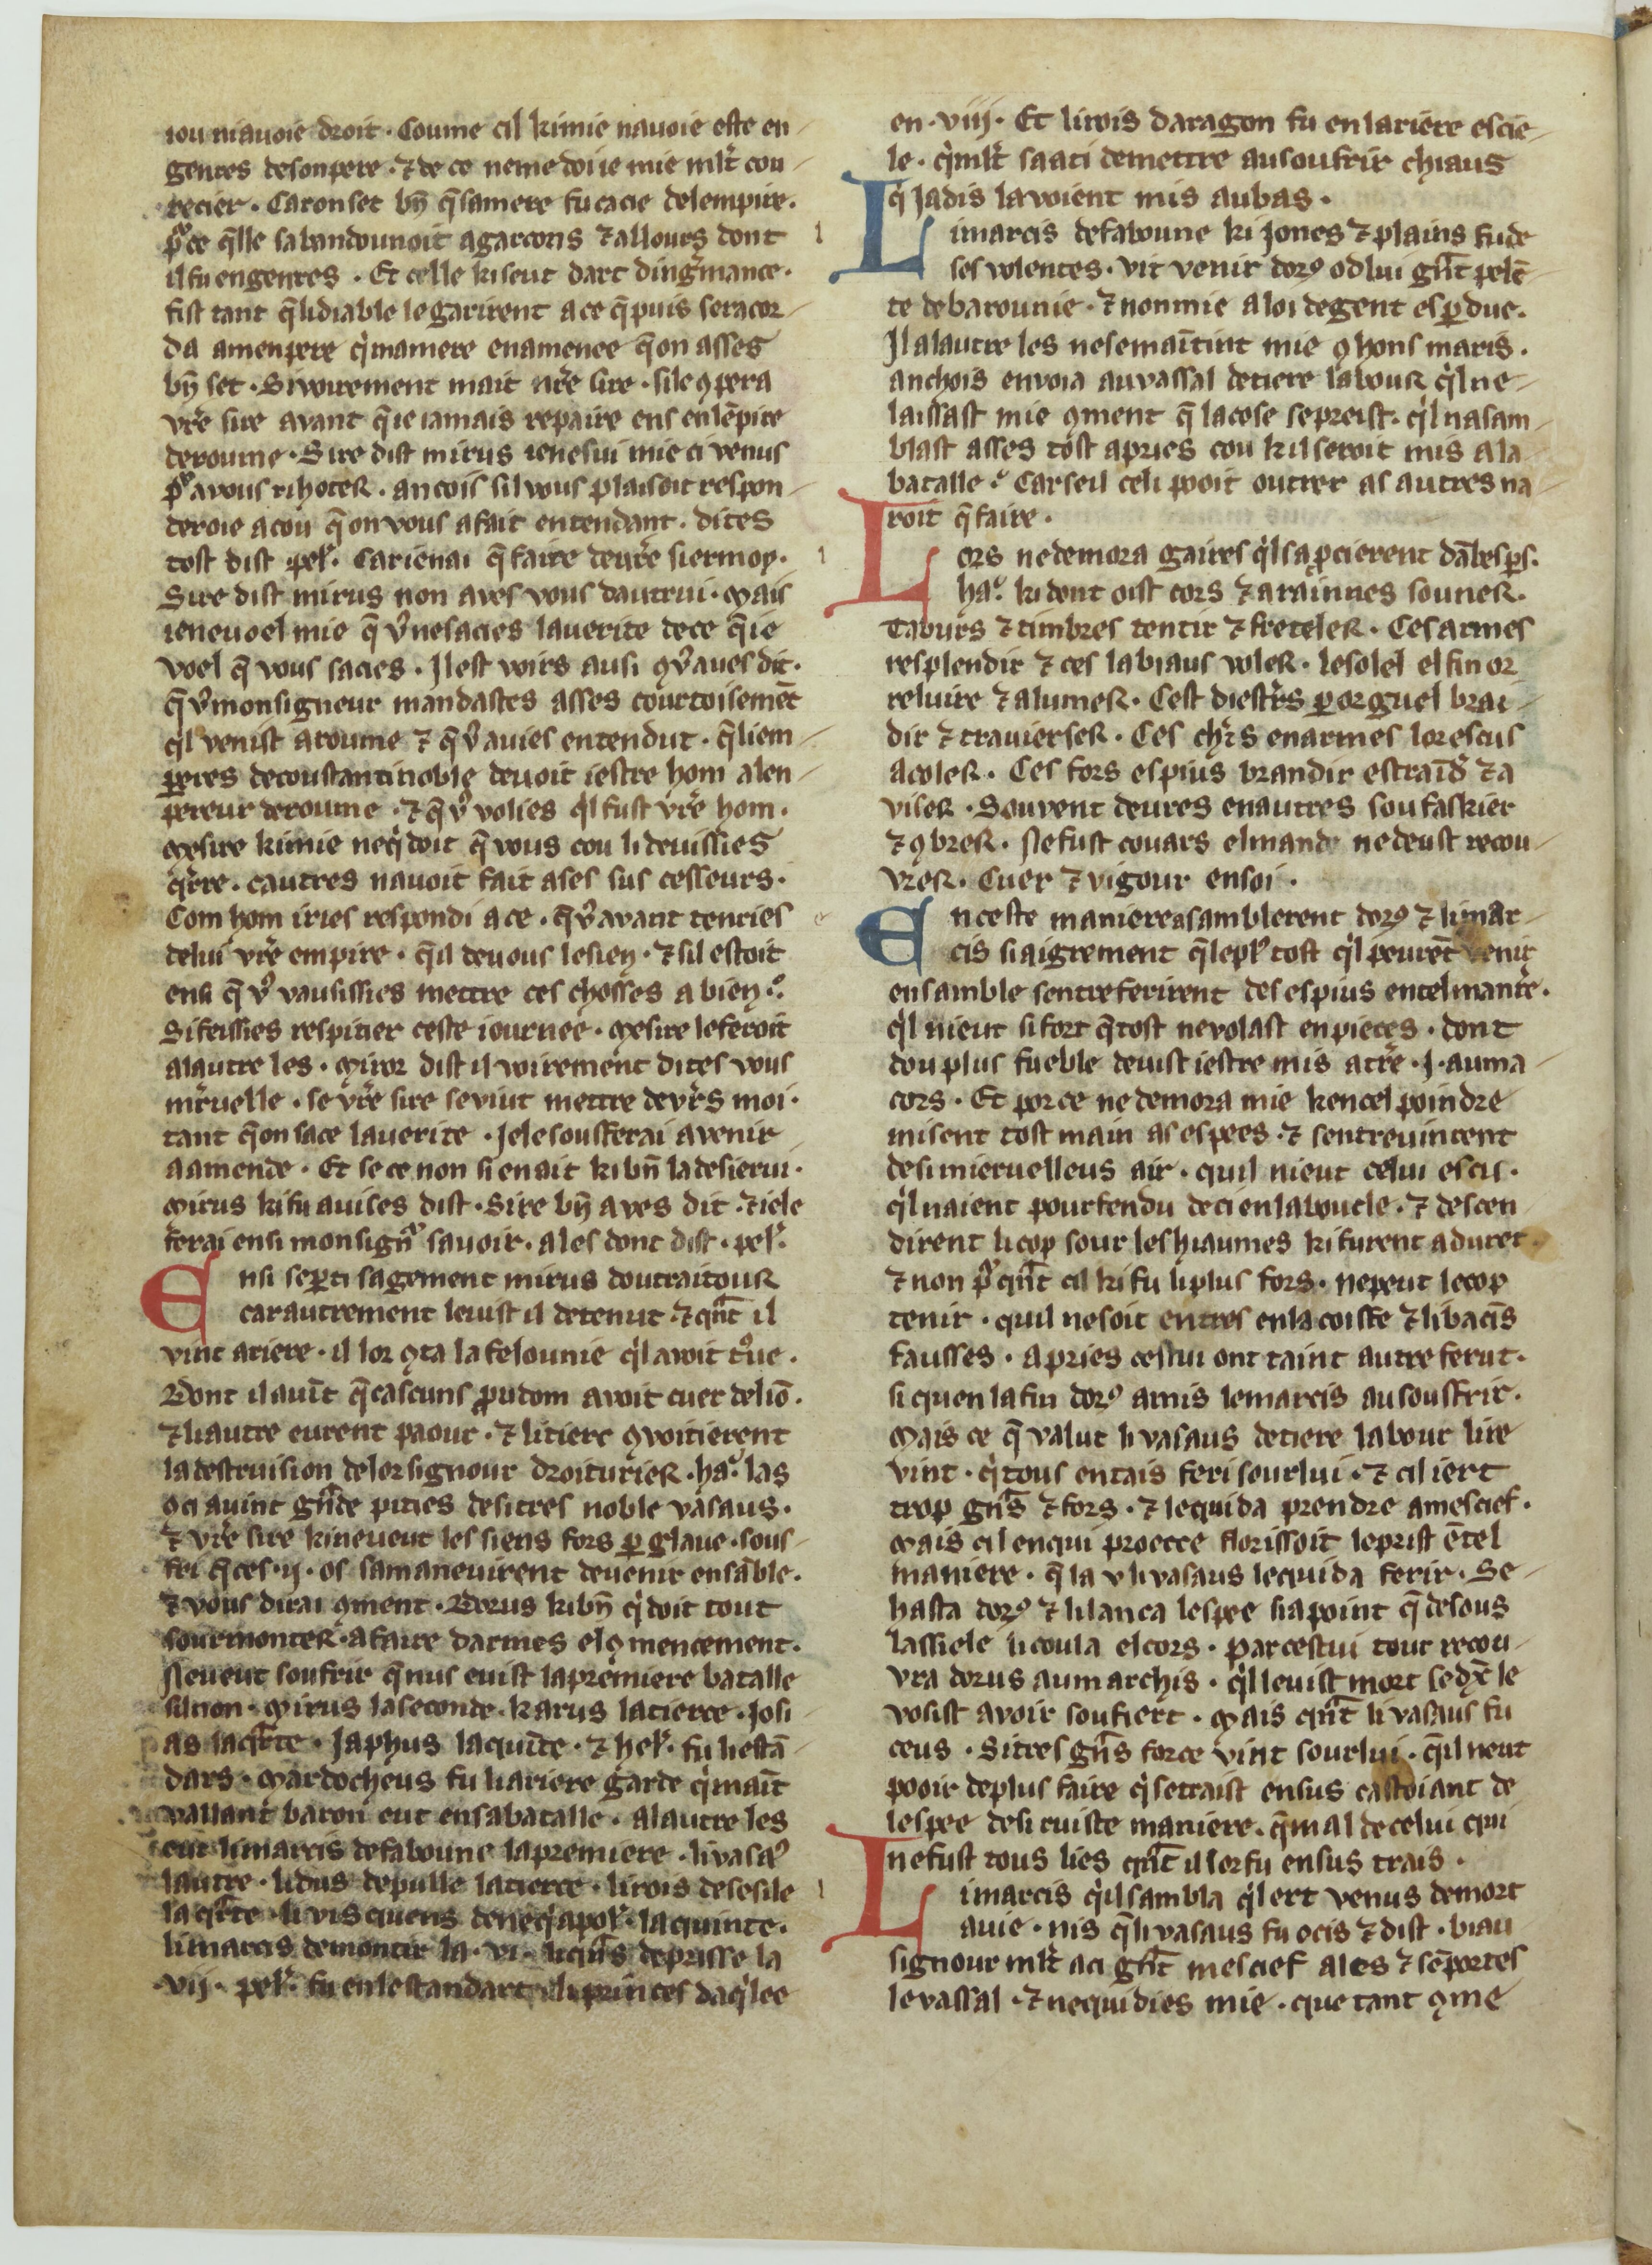 iou niauoie droit · Coume cil kimie nauoie este en
gentes desonpere · ⁊ de ce neme doi ie mie ml't cou
recier · Caronset bn̄ q̄samere fu cacie delempire ·
p͛ce q̄lle sabandounoit agarcons ⁊ allours dont
il fu engenres · Et celle kiseut dart dingmance ·
fist tant q̄lidiable le garirent a ce q̄puis seracor
da amenpere qͥmaniere enamenee q̄on asses
bn̄ set · Si voirement mait nr̄e sire · sile ꝯpera
vr̄e sire auant q̄ie iamais repaire ens enlēpire
deroume · Sire dist mirus ienesui mie ci venus
p͛ avous rihoter · ancois sil vous plaisoit respon
deroie acou q̄ on vous a fait entendant · dites
tost dist pel᾽ · Carienai q̄ faire deur̄e siermon ·
Sire dist mirus non aves vous dautrui · Mais
ieneuoel mie q̄ v͛nesacies lauerite dece q̄ ie
voel q̄ vous sacies · Il est voirs ausi ꝯv͛aues dit ·
q̄ v͛monsigneur mandastes asses courtoisemēt
qͥl venist aroume ⁊ q̄ v͛ auies entendut · q̄liem
ꝑeres decoustantinoble deuoit iestre hom alen
pereur deroume · ⁊ q̄ v͛ volies qͥl fust vr̄e hom ·
Mesire kimie neqͥdoit q̄ vous cou li deuissies
qͥrre · cautres nauoit fait ases sus cesseurs ·
Com hom iries respondi a ce · q̄v͛auant tenries
delui vr̄e empire · q̄il deuous lesien · ⁊ sil estoit
ensi q̄ v͛ vausissies mettre ces choses a bien ·
Si feissies respitier ceste iournee · Mesire le feroit
alautre les · Miror dist il voirement dites vous
mr̄uelle · se vr̄e sire seviut mettre deurs moi ·
tant q̄on sace lauerite · Iele soufferai avenir
aamende · Et se ce non si enait ki bn̄ ladesierui ·
Mirus ki fu auises dist · Sire bn̄ aves dit · ⁊ iele
ferai ensi monsign͛ sauoir · ales dont dist · pel᾽ ·
Ensi se ꝑti sagement mirus dou traitour
car autrement leuist il detenut · ⁊ qn̄t il
vint ariere · il lor ꝯta la felounie qͥl avoit t͛ue ·
Dont il auīt q̄cascuns ꝓudom avoit cuer deliō ·
⁊ li autre eurent paour · ⁊ li tierc ꝯvoitierent
la destruision delor signour droiturier · ha · las
ꝯci auint gn̄de pities desitres noble vasaus ·
⁊ vr̄e sire kineueut les siens fors ꝑ glaue · sous
fri q̄ces · ij · os samaneuirent deuenir ensāble ·
⁊ vous dirai ꝯment · Dorus kibn̄ qͥdoit tout
sourmonter · a faire darmes elꝯmencement ·
Neueut soufrir q̄nus euist lapremiere batalle
silnon · Mirus laseconde · karus latierce · Josi
as laqrte · Japhus laquīte · ⁊ hel᾽ · fu liestā
dars · Mardocheus fu liariere garde qͥmaīt
vallant baron eut ensabatalle · alautre les
eut limarcis defaboune lapremiere · livasa᾽
lautre · lidus depulle latierce · lirois desesile
laqrte · li vis quens deneqͥapol᾽ · laquinte ·
limarcis demontir la · vi · liquēs deprisse la
· vij · pel᾽ · fu enlestandart · li princes daqͥlee
en · viij · Et lirois daragon fu en lariere escie
le · qͥmlt᾽ saati demettre ausoufrir chiaus
qͥ Jadis lavoient mis aubas ·
Limarcis defaboune ki Jones ⁊ plains fu de
ses volentes · vit venir dor᾽ od lui gn̄t pelē
te debarounie · ⁊ non mie a loi degent esꝑdue ·
Il alautre les nesemaītint mie ꝯhons maris ·
anchois envoia auvassal detiere labour qͥl ne
laissast mie ꝯment q̄ lacose sepreist · qͥl nasam
blast asses tost apries cou kil seroit mis ala
batalle · Carseil celi pooit outrer as autres na
roit q̄ faire ·
Lors nedemora gaires qͥl sap͛cierent dābesꝑs ·
ha · ki dont oist cors ⁊ arainnes souner ·
Taburs ⁊ timbres tentir ⁊ freteler · Ces armes
resplendir ⁊ ces labiaus voler · lesolel el fin or
reluire ⁊ alumer · Cest diestrs ꝑ orguel brai
dir ⁊ travierser · Ces chrs̄ enarmes lor escus
acoler · Ces fors espius brandir estraīd᾽ ⁊ a
viser · Souvent deures enautres soufaskier
⁊ ꝯbrer · Nefust couars elmande nedeust recou
vrer · Cuer ⁊ vigour ensoi ·
En ceste maniere asamblerent dor᾽ ⁊ limar
cis si aigrement q̄lepl᾽ tost qͥl peurēt venir
ensamble sentreferirent des espius entelmanr̄e ·
qͥl nieut si fort q̄tost nevolast enpieces · dont
dou plus fueble deuist iestre mis atr̄e · J · auma
cors · Et por ce ne demora mie kencel poindre
misent tost main as espees · ⁊ sentreuinrent
desi mieruelleus air · quil nieut celui escu ·
qͥl naient pourfendu deci enlaboucle · ⁊ descen
dirent licop sour les hiaumes ki furent aduret ·
⁊ non p͛ qn̄t cil ki fu liplus fors · nepeut lecop
tenir · quil nesoit entres enla coiffe ⁊ libacīs
fausses · apries cestui ont taint autre ferut ·
si quen la fin dor᾽ amis lemarcis ausouffrir ·
Mais ce q̄ valut li vasaus detiere labour lire
vint · qͥtous entais feri sourlui · ⁊ cil iert
trop gn̄s ⁊ fors · ⁊ lequida prendre amescief ·
Mais cil enqui proecce florissoit leprist ētel
maniere · q̄ la v livasaus lequida ferir · Se
hasta dor᾽ ⁊ li lanca lespee siapoint q̄ desous
lassiele li coula elcors · Par cestui tour recou
vra dorus aumarchis · qͥl leuist mort sedx̄ le
vosist avoir soufiert · Mais qn̄t livasaus fu
ceus · Sitres gn̄s force vint sourlui · q̄il neut
pooir deplus faire qͥsetraist ensus castoiant de
lespee desi ruiste maniere · q̄mal de celui qui
nefust tous lies qn̄t il lorfu ensus trais ·
Limarcis qͥl sambla qͥl ert venus demort
a uie · nis q̄livasaus fu ocis ⁊ dist · biau
signour mlt᾽ aci gn̄t mescief ales ⁊ sēportes
levassal · ⁊ nequidies mie · que tant ꝯme